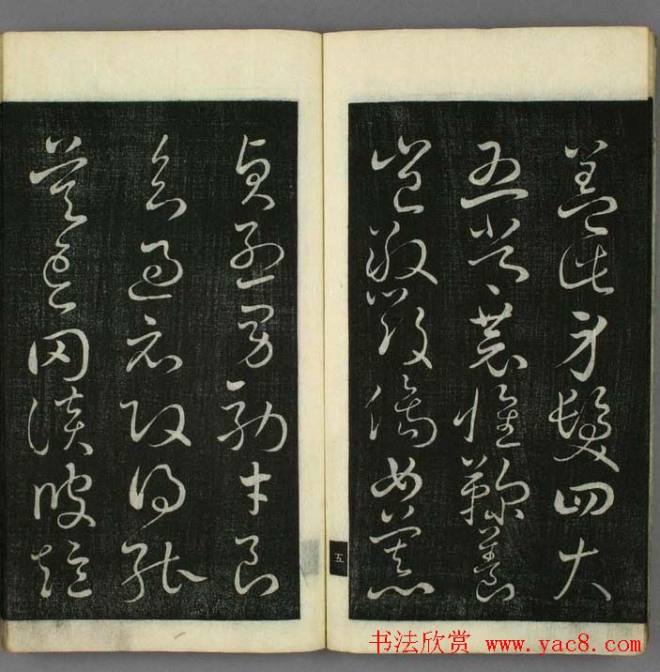 蓋此身髮四大
五常恭惟鞠養
豈敢毀傷女慕
貞烈男效才良
知過必改得能
莫忘罔談彼短
五
书法欣赏 www.yac8.com